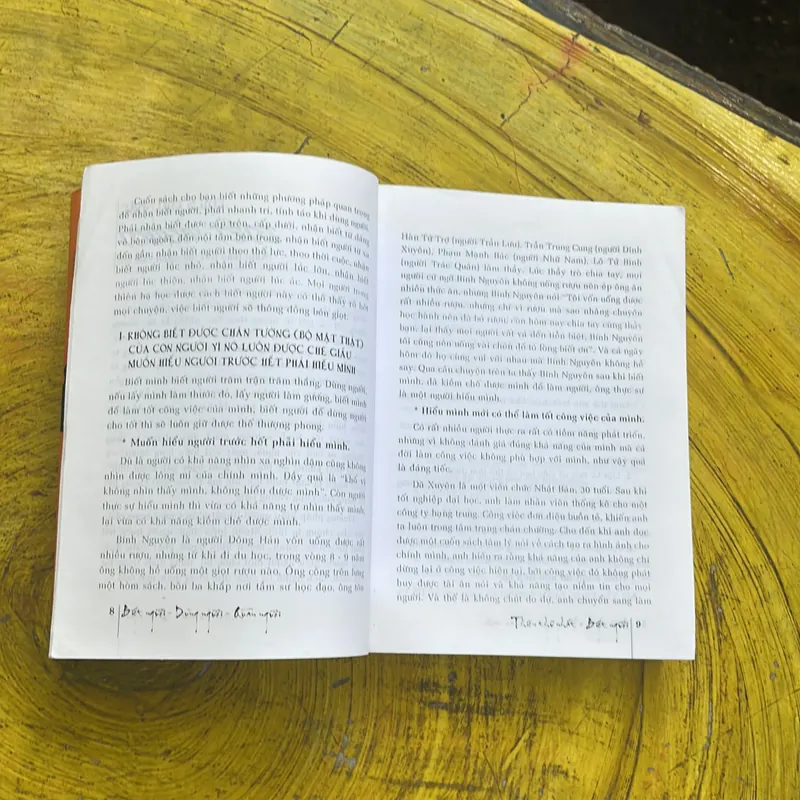 Cuốn sách cho bạn biết những phương pháp quan trọng
để nhận biết người, phải nhanh trí, tỉnh táo khi dùng người.
Phải nhận biết được cấp trên, cấp dưới, nhận biết từ dáng
vẻ bên ngoài, đến nội tâm bên trong, nhận biết người từ xa
đến gần, nhận biết người theo thế lực, theo thời cuộc, nhận
biết người lúc nhỏ, nhận biết người lúc lớn, nhận biết
người lúc thiện, nhận biết người lúc ác. Mọi người trong
thiên hạ học được cách biết người này có thể thấy rõ hết
mọi chuyện, việc biết người sẽ thông đồng bén giọt.
I- KHÔNG BIẾT ĐƯỢC CHÂN TƯỚNG (BỘ MẶT THẬT)
CỦA CON NGƯỜI VÌ NÓ LUÔN ĐƯỢC CHE GIẤU
MUỐN HIỂU NGƯỜI TRƯỚC HẾT PHẢI HIỂU MÌNH
Biết mình biết người trăm trận trăm thắng. Dùng người,
nếu lấy mình làm thước đo, lấy người làm gương, biết mình
để làm tốt công việc của mình, biết người để dùng người
cho tốt thì sẽ luôn giữ được thế thượng phong.
* Muốn hiểu người trước hết phải hiểu mình.
Dù là người có khả năng nhìn xa nghìn dặm cũng không
nhìn được lông mi của chính mình. Đây quả là "khổ vì
không nhìn thấy mình, không hiểu được mình". Con người
thực sự hiểu mình thì vừa có khả năng tự nhìn thấy mình
lại vừa có khả năng kiềm chế được mình.
Bình Nguyên là người Đông Hán vốn uống được rất
nhiều rượu, nhưng từ khi đi du học, trong vòng 8 - 9 năm
ông không hề uống một giọt rượu nào. Ông cõng trên lưng
một hòm sách, bôn ba khắp nơi tầm sư học đạo, ông tôn
8 Biết người - Dùng người - Quản người
Hàn Tử Trợ (người Trần Lưu), Trần Trung Cung (người Dĩnh
Xuyên), Phạm Mạnh Bác (người Nhữ Nam), Lô Tử Bình
(người Trác Quân) làm thầy. Lúc thầy trò chia tay, mọi
người cứ ngỡ Bình Nguyên không uống rượu nên ép ông ăn
nhiều thức ăn, nhưng Bình Nguyên nói: "Tôi vốn uống được
rất nhiều rượu, nhưng chỉ vì rượu mà sao nhãng chuyện
học hành nên đã bỏ nó, còn hôm nay chia tay cùng thầy
bạn, lại thấy mọi người vất vả đến tiễn biệt, Bình Nguyên
tôi cũng nên uống vài chén để tỏ lòng biết ơn". Và cả ngày
hôm đó họ cùng vui với nhau mà Bình Nguyên không hề
say. Qua câu chuyện trên ta thấy Bình Nguyên sau khi biết
mình, đã kiềm chế được mình để làm người, ông thực sự
là một người hiểu mình.
* Hiểu mình mới có thể làm tốt công việc của mình.
Có rất nhiều người thực ra rất có tiềm năng phát triển,
nhưng vì không đánh giá đúng khả năng của mình mà cả
đời làm công việc không phù hợp với mình, như vậy quả
là đáng tiếc.
Dã Xuyên là một viên chức Nhật Bản, 30 tuổi. Sau khi
tốt nghiệp đại học, anh làm nhân viên thống kê cho một
công ty hạng trung. Công việc đơn điệu buồn tẻ, khiến anh
ta luôn trong tâm trạng chán chường. Cho đến khi anh đọc
được một cuốn sách tâm lý nói về cách tạo ra hình ảnh cho
chính mình, anh hiểu ra rằng khả năng của anh không chỉ
dừng lại ở công việc hiện tại, bởi công việc đó không phát
huy được tài ăn nói và khả năng tạo niềm tin cho mọi
người. Và thế là không chút do dự, anh chuyển sang làm
- Biết người 9